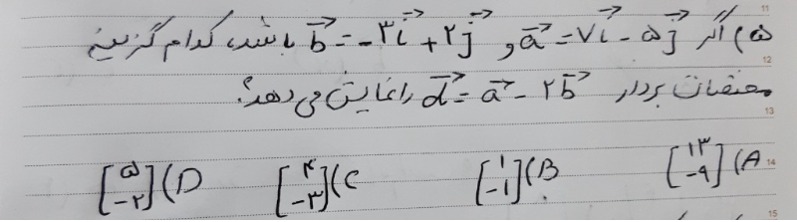 11
۵) اگر a⃗ = ۷i⃗ - ۵j⃗ و b⃗ = -۳i⃗ + ۲j⃗ باشد، کدام گزینه
12
مختصات بردار d⃗ = a⃗ - ۲b⃗ را نمایش می دهد؟
13
A) [۱۳ -۹] B) [۱ -۱] C) [۴ -۳] D) [۵ -۲]
14
15